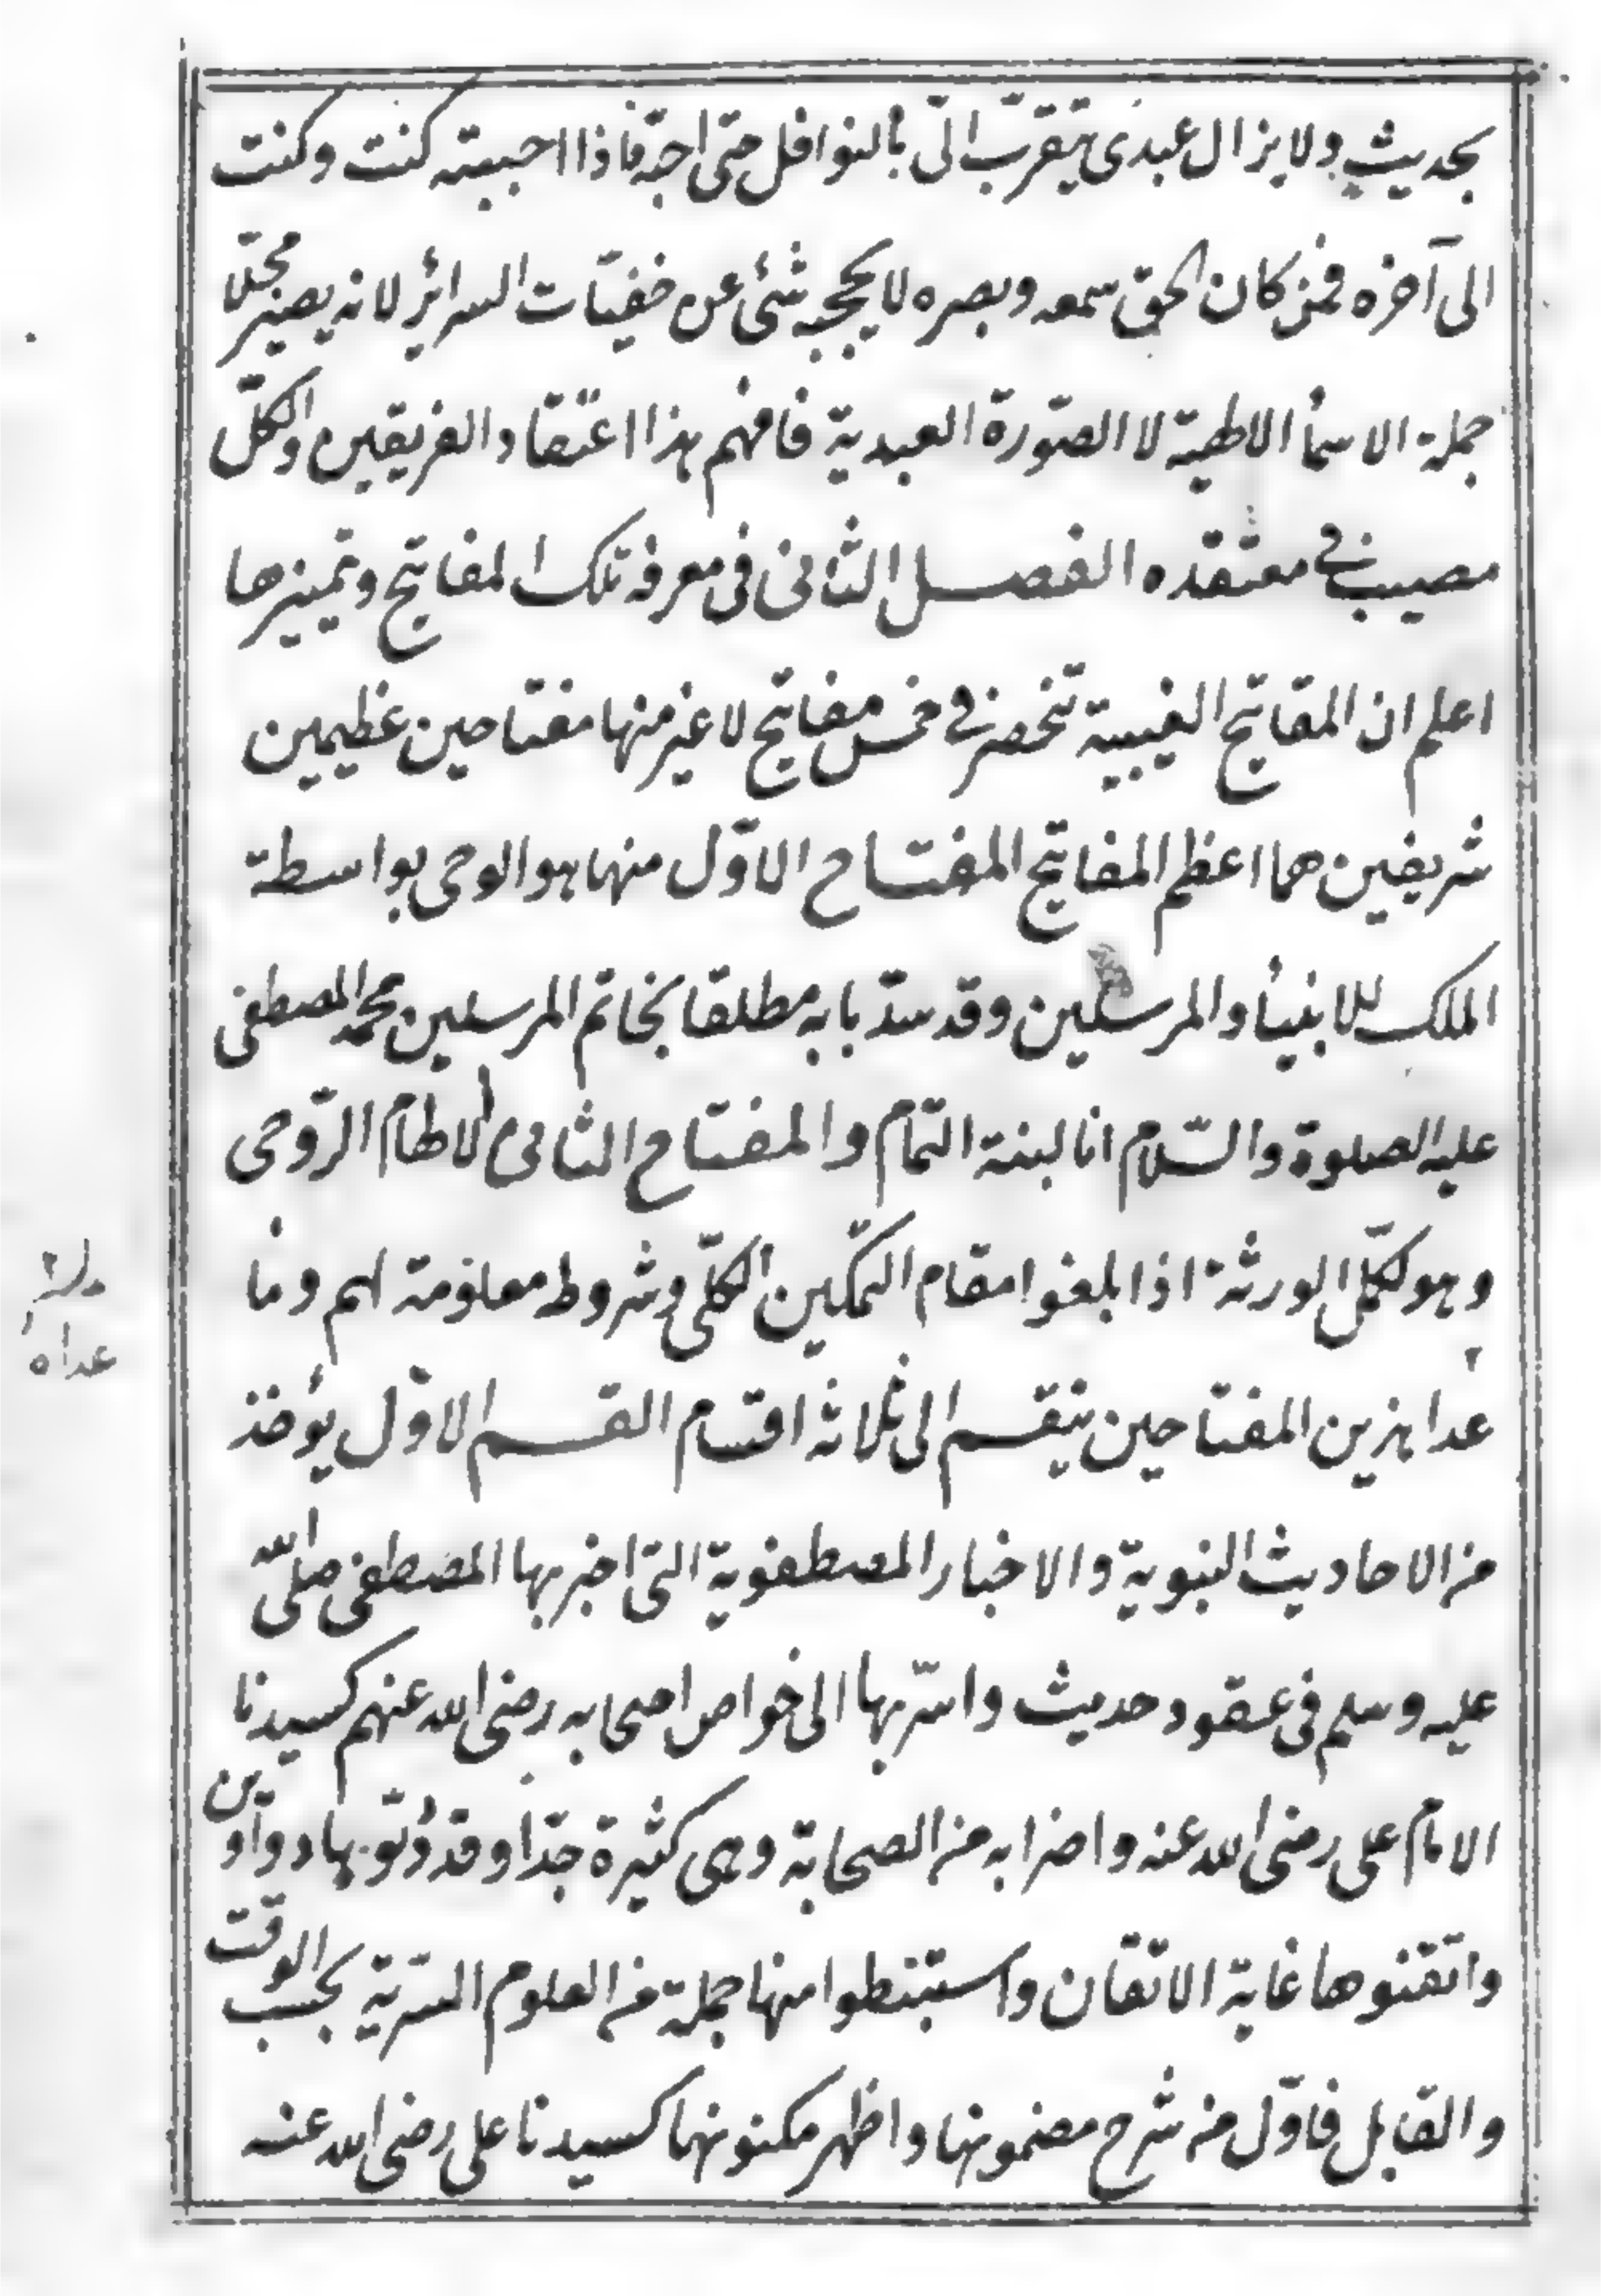 بحديث ولا يزال عبدى يتقرب الىّ بالنوافل حتى احبّه فاذا احببته كنت وكنت
الى آخره فمن كان الحق سمعه وبصره لا يحجبه شئ عن خفيّات السرائر لانه يصير مجلا
جملة الاسمأ الالهية لا الصّورة العبدية فافهم هذا اعتقاد الفريقين والكلّ
مصيب فى معتقده الفصل الثانى فى معرفة تلك المفاتيح وتميزها
اعلم ان المفاتيح الغيبية تنحصر فى خمس مفاتيح لا غير منها مفتاحين عظيمين
شريفين هما اعظم المفاتيح المفتاح الاوّل منها هو الوحى بواسطة
الملك للانبيأ والمرسلين وقد سدّ بابه مطلقا بخاتم المرسلين محمد المصطفى
عليه الصلوة والسّلام انا لبنة التمام والمفتاح الثانى الالهام الرّوحى
وهو لكمّل الورثة اذا بلغوا مقام التمكين الكلّى وشروط معلومة لهم وما
عدا هذين المفتاحين ينقسم الى ثلاثة اقسام القسم الاوّل يؤخذ
من الاحاديث النبوية والاخبار المصطفوية التى اخبر بها المصطفى صلى الله
عليه وسلم فى عقود حديث واسرّ بها الى خواص اصحابه رضى الله عنهم كسيدنا
الامام على رضى الله عنه واضرابه من الصحابة وهى كثيرة جدّا وقد دوّنوا بها دواوين
واتقنوها غاية الاتقان واستنبطوا منها جملة من العلوم السرّية بحسب الوقت
والقابل فاوّل من شرح مضمونها واظهر مكنونها كسيدنا على رضى الله عنه
عداه